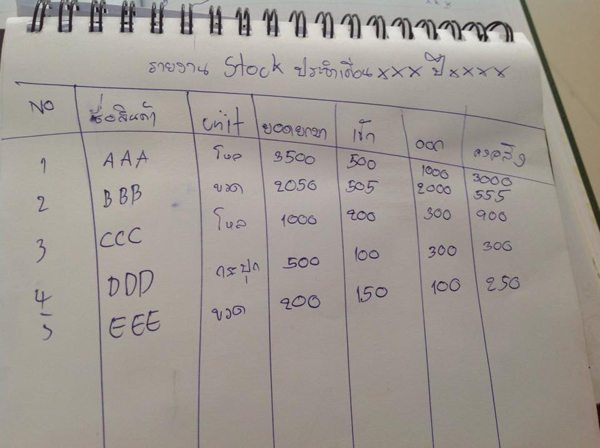 รายงาน Stock ประจำเดือน xxx ปี xxxx
NO ชื่อสินค้า unit ยอดยกมา เข้า ออก คงเหลือ
1 AAA โหล 3500 500 1000 3000
2 BBB ขวด 2050 505 2000 555
3 CCC โหล 1000 200 300 900
4 DDD กระปุก 500 100 300 300
5 EEE ขวด 200 150 100 250